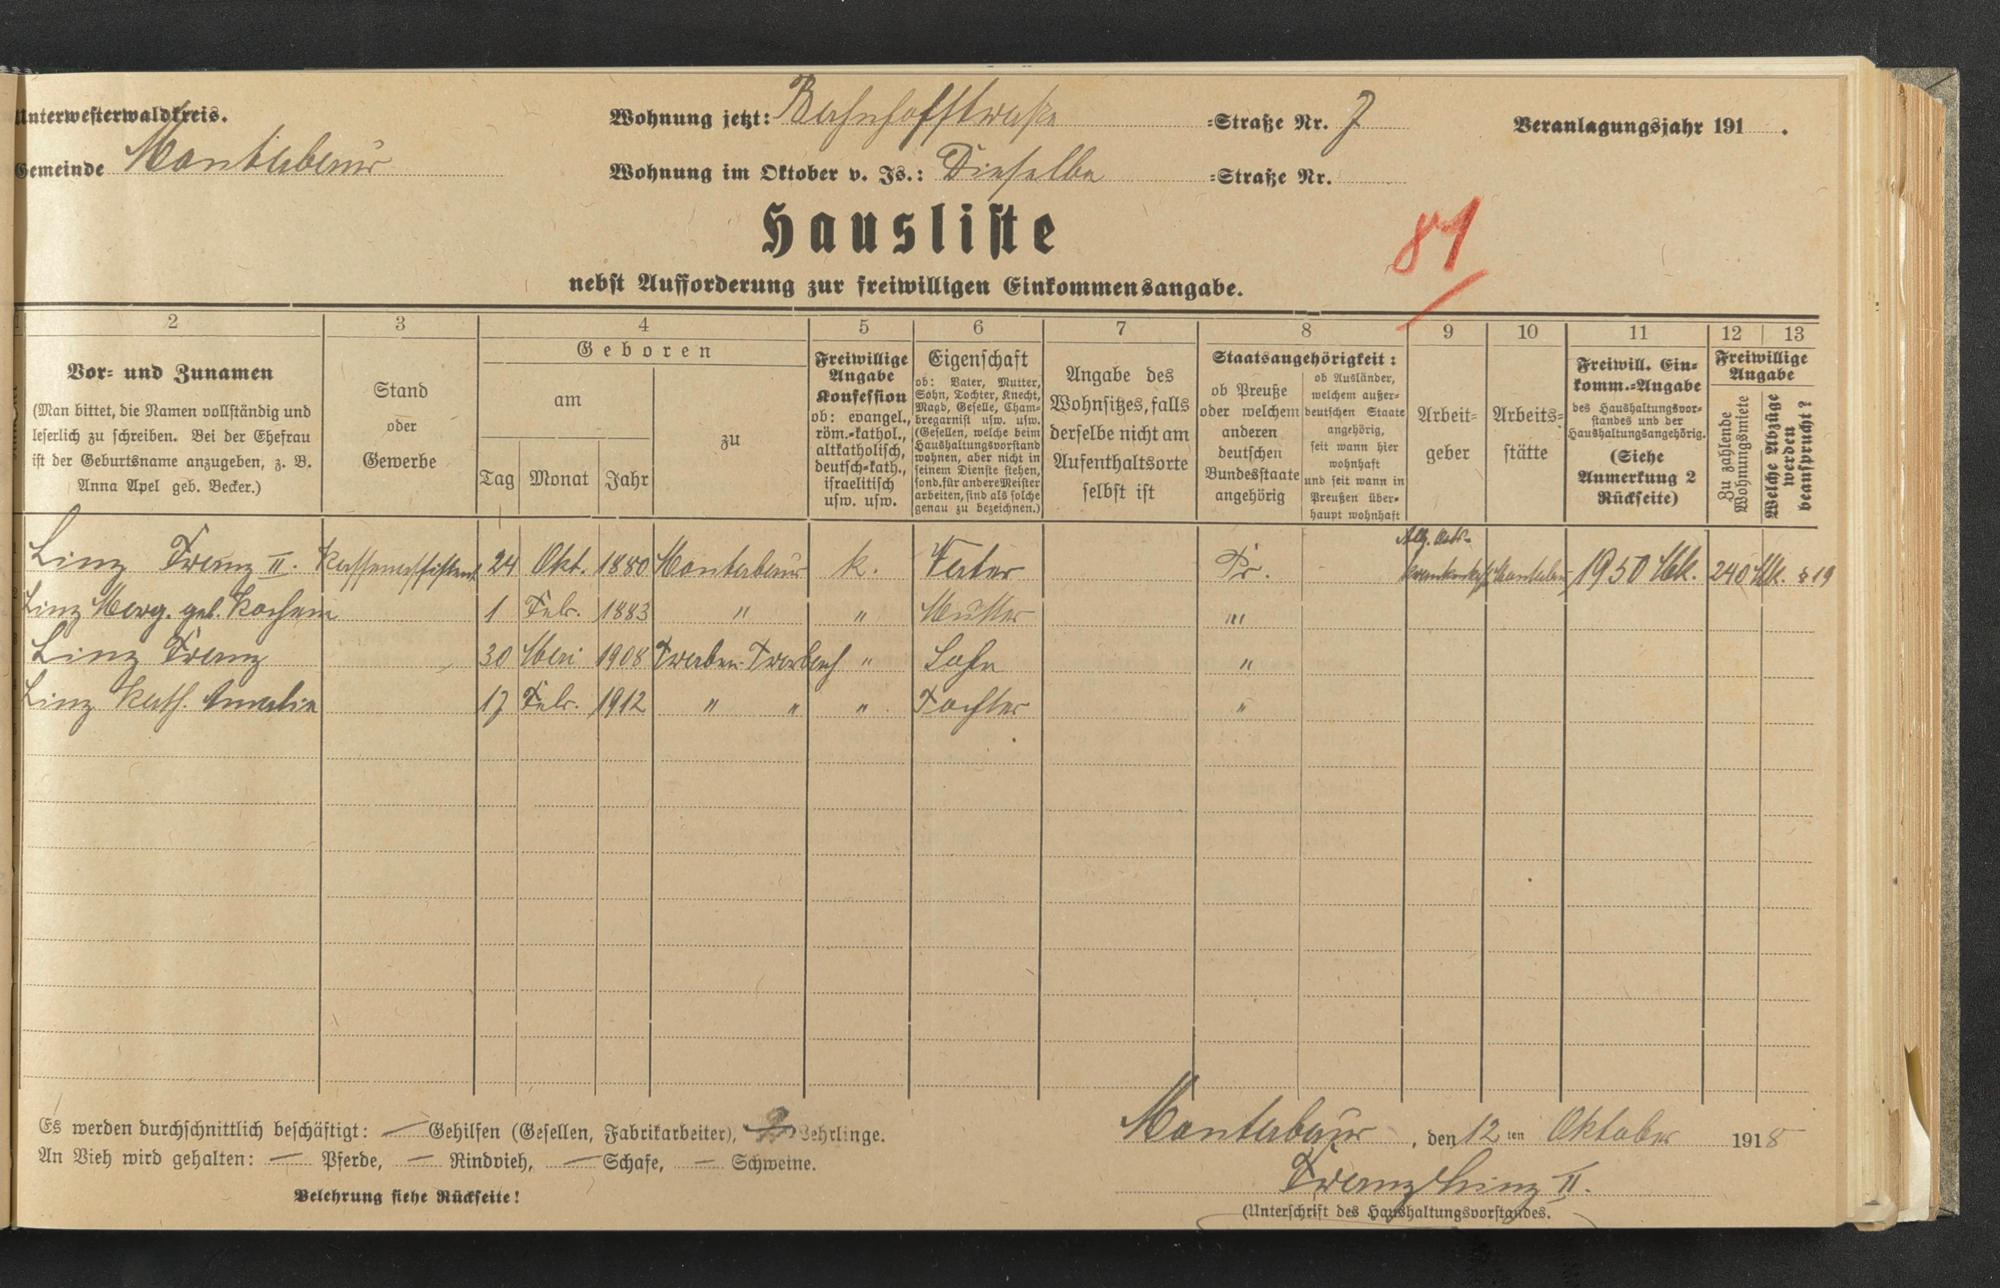 Unterwesterwaldkreis.
Wohnung jetzt: Bahnhofstraße -Straße Nr. 7
Veranlagungsjahr 191 .
Gemeinde Montabaur
Wohnung im Oktober v. Js.: Dieselbe -Straße Nr.
Hausliste
81
nebst Aufforderung zur freiwilligen Einkommensangabe.
2 3 4 5 6 7 8 9 10 11 12 13
Vor- und Zunamen
(Man bittet, die Namen vollständig und
leserlich zu schreiben. Bei der Ehefrau
ist der Geburtsname anzugeben, z. B.
Anna Apel geb. Becker.)
Stand
oder
Gewerbe
Geboren
am
Tag Monat Jahr
zu
Freiwillige
Angabe
Konfession
ob: evangel.,
röm.-kathol.,
altkatholisch,
deutsch-kath.,
israelitisch
usw. usw.
Eigenschaft
ob: Vater, Mutter,
Sohn, Tochter, Knecht,
Magd, Geselle, Cham-
bregarnist usw. usw.
(Gesellen, welche beim
Haushaltungsvorstand
wohnen, aber nicht in
seinem Dienste stehen,
sond. für andere Meister
arbeiten, sind als solche
genau zu bezeichnen.)
Angabe des
Wohnsitzes, falls
derselbe nicht am
Aufenthaltsorte
selbst ist
Staatsangehörigkeit:
ob Preuße
oder welchem
anderen
deutschen
Bundesstaate
angehörig
ob Ausländer,
welchem außer-
deutschen Staate
angehörig,
seit wann hier
wohnhaft
und seit wann in
Preußen über-
haupt wohnhaft
Arbeit-
geber
Arbeits-
stätte
Freiwill. Ein-
komm.-Angabe
des Haushaltungsvor-
standes und der
Haushaltungsangehörig.
(Siehe
Anmerkung 2
Rückseite)
Freiwillige
Angabe
Zu zahlende
Wohnungsmiete
Welche Abzüge
werden
beansprucht?
Allg. Orts-
Linz Franz II. Kassenassistent 24 Okt. 1880 Montabaur k. Vater Pr. Krankenkasse Montabaur 1950 Mk. 240 Mk. § 19
Linz Marg. geb. Kochem 1 Febr. 1883 " " Mutter "
Linz Franz 30 Mai 1908 Traben-Trarbach " Sohn "
Linz Kath. Amalie 17 Febr. 1912 " " " Tochter "
Es werden durchschnittlich beschäftigt: — Gehilfen (Gesellen, Fabrikarbeiter), Lehrlinge.
An Vieh wird gehalten: — Pferde, — Rindvieh, — Schafe, — Schweine.
Belehrung siehe Rückseite!
Montabaur, den 12 ten Oktober 1918
Franz Linz II.
(Unterschrift des Haushaltungsvorstandes.